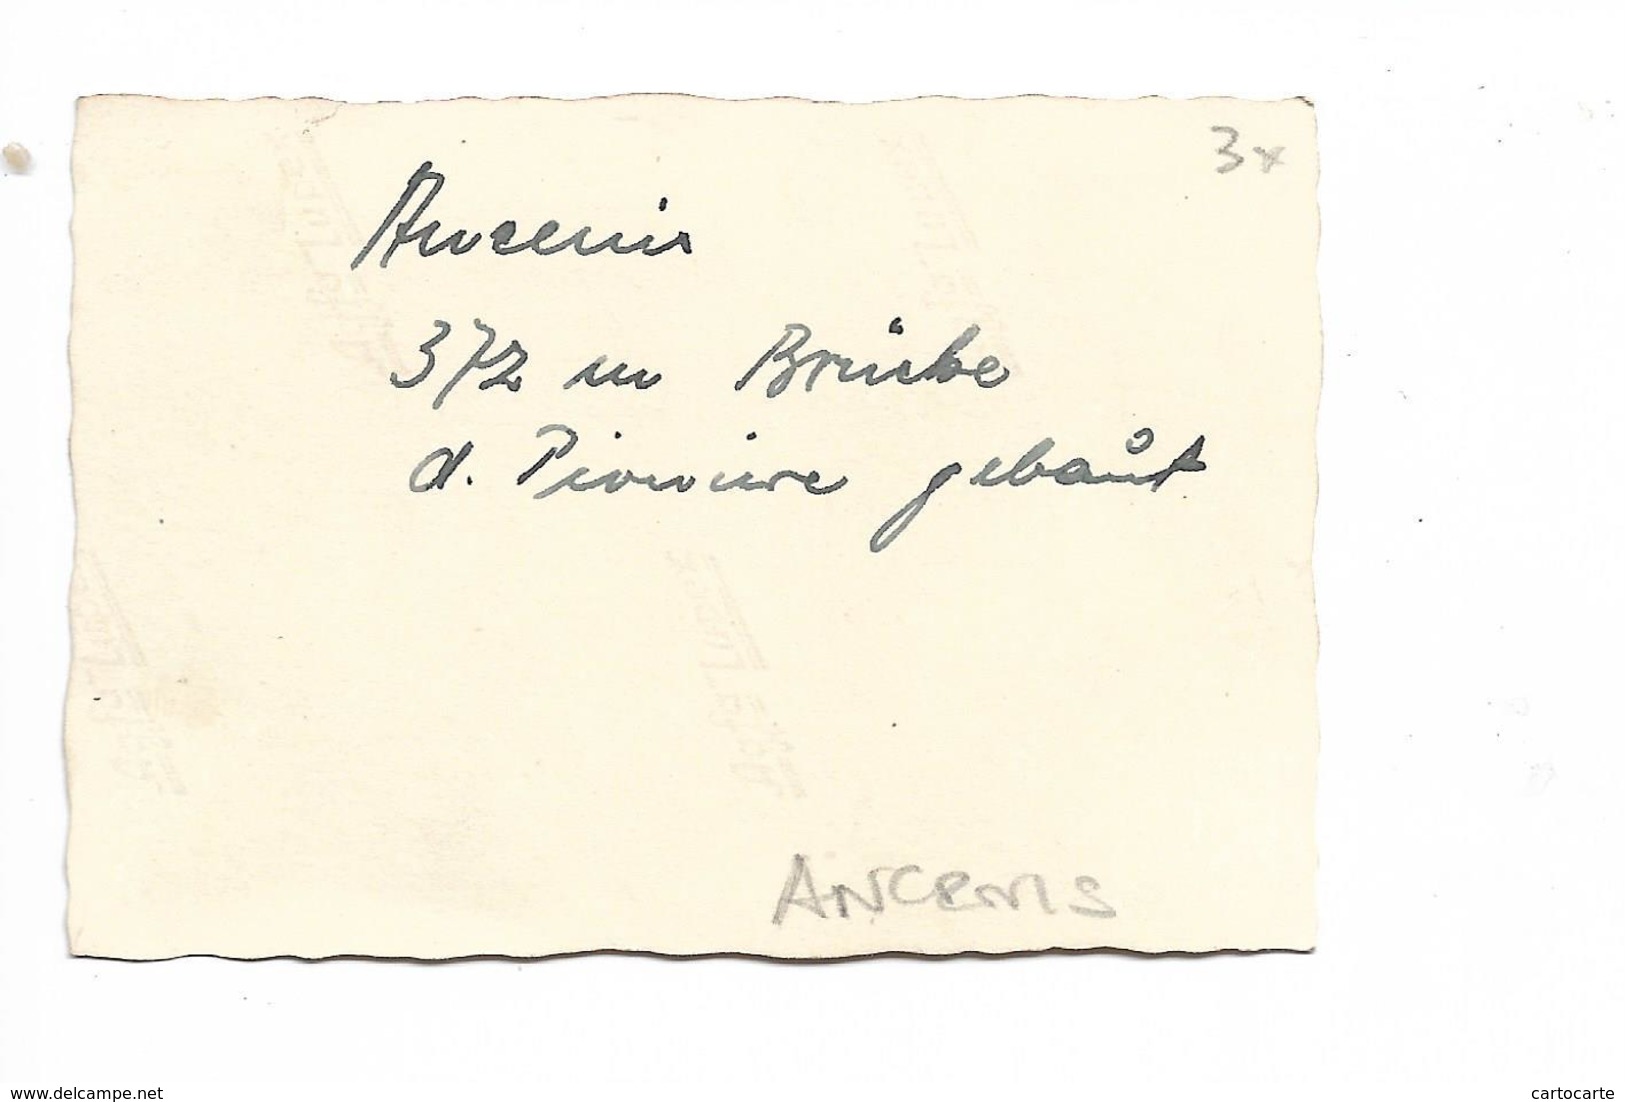 3x
Ancenis
372 m Brücke
d. Pioniere gebaut
ANCENIS
www.delcampe.net
cartocarte